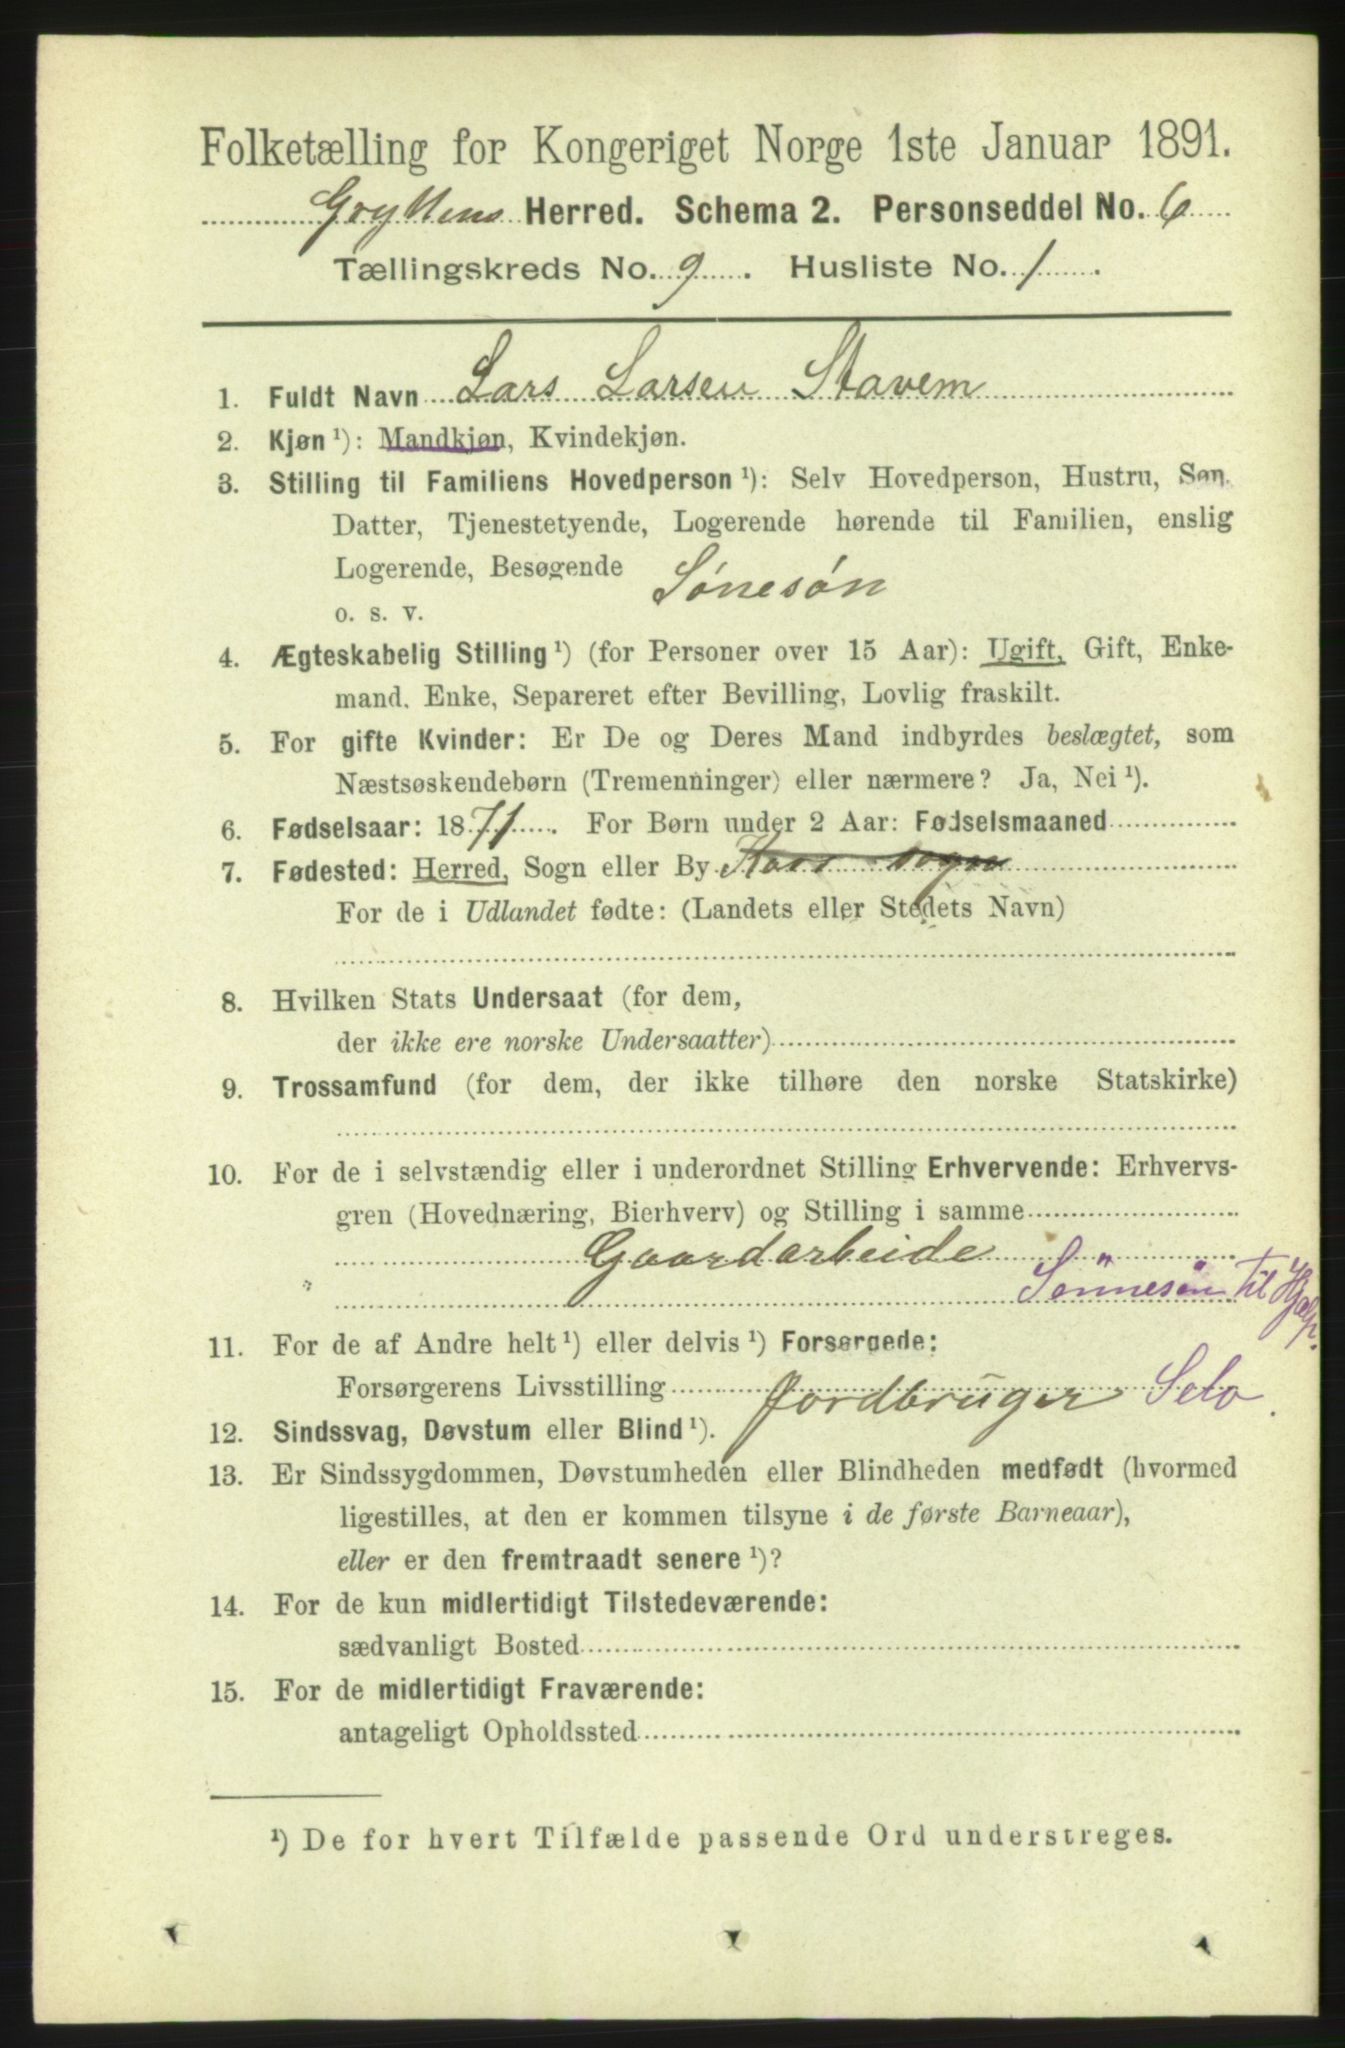 Folketælling for Kongeriget Norge 1ste Januar 1891.
Gryttens Herred. Schema 2. Personseddel No. 6
Tællingskreds No. 9. Husliste No. 1.
1. Fuldt Navn Lars Larsen Stavem
2. Kjøn ¹): Mandkjøn, Kvindekjøn.
3. Stilling til Familiens Hovedperson ¹): Selv Hovedperson, Hustru, Søn,
Datter, Tjenestetyende, Logerende hørende til Familien, enslig
Logerende, Besøgende Sønesøn
o. s. v.
4. Ægteskabelig Stilling ¹) (for Personer over 15 Aar): Ugift, Gift, Enke-
mand, Enke, Separeret efter Bevilling, Lovlig fraskilt.
5. For gifte Kvinder: Er De og Deres Mand indbyrdes beslægtet, som
Næstsøskendebørn (Tremenninger) eller nærmere? Ja, Nei ¹).
6. Fødselsaar: 1871. For Børn under 2 Aar: Fødselsmaaned
7. Fødested: Herred, Sogn eller By Kors sogn
For de i Udlandet fødte: (Landets eller Stedets Navn)
8. Hvilken Stats Undersaat (for dem,
der ikke ere norske Undersaatter)
9. Trossamfund (for dem, der ikke tilhøre den norske Statskirke)
10. For de i selvstændig eller i underordnet Stilling Erhvervende: Erhvervs-
gren (Hovednæring, Bierhverv) og Stilling i samme
Gaardarbeide
Sønnesøn til Hjælp.
11. For de af Andre helt ¹) eller delvis ¹) Forsørgede:
Forsørgerens Livsstilling Jordbruger Selv.
12. Sindssvag, Døvstum eller Blind ¹).
13. Er Sindssygdommen, Døvstumheden eller Blindheden medfødt (hvormed
ligestilles, at den er kommen tilsyne i de første Barneaar),
eller er den fremtraadt senere ¹)?
14. For de kun midlertidigt Tilstedeværende:
sædvanligt Bosted
15. For de midlertidigt Fraværende:
antageligt Opholdssted
¹) De for hvert Tilfælde passende Ord understreges.